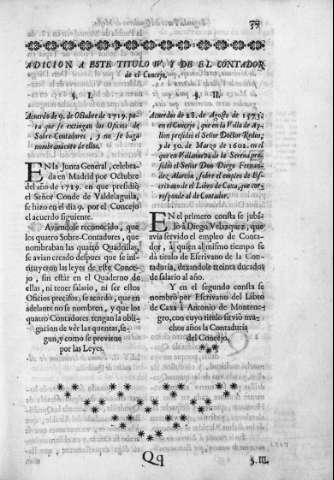 ADICION A ESTE TITULO IV. Y DE EL CONTADOR
de el Concejo.
§. I.
Acuerdo de 9. de Octubre de 1719. pa-
ra que se extingan los Oficios de
Sobre-Contadores, y no se haga
nombramiento de ellos.
EN la Junta General, celebra-
da en Madrid por Octubre
del año de 1719. en que presidiò
el Señor Conde de Valdelaguila,
se hizo en el dia 9. por el Concejo
el acuerdo siguiente.
Aviendose reconocido, que
los quatro Sobre-Contadores, que
nombraban las quatro Quadrillas,
se avian creado despues que se ins-
tituyeron las leyes de este Conce-
jo, sin estàr en el Quaderno de
ellas, ni tener salario, ni ser estos
Oficios precisos, se acordò, que en
adelante no se nombren, y que los
quatro Contadores tengan la obli-
gacion de vèr las quentas, se-
gun, y como se previene
por las Leyes.
§. II.
Acuerdos de 28. de Agosto de 1575.
en el Concejo, que en la Villa de
presidiò el Señor Doctor
y de 30. de Março de 1602. en el
que en Villanueva de la Serena presi-
diò el Señor Don Diego Fernandez,
Alarcòn, sobre el empleo de Es-
crivano de el Libro de Caxa, que cor-
responde al de Contador.
EN el primero consta se jubi-
lò à Diego Velazquez, que
avia servido el empleo de Conta-
dor, à quien al mismo tiempo se
dà titulo de Escrivano de la Con-
taduria, dexandole treinta ducados
de salario al año.
Y en el segundo consta se
nombrò por Escrivano del Libro
de Caxa à Antonio de Montene-
gro, con cuyo titulo sirviò mu-
chos años la Contaduria
del Concejo.
Qq
§. III.